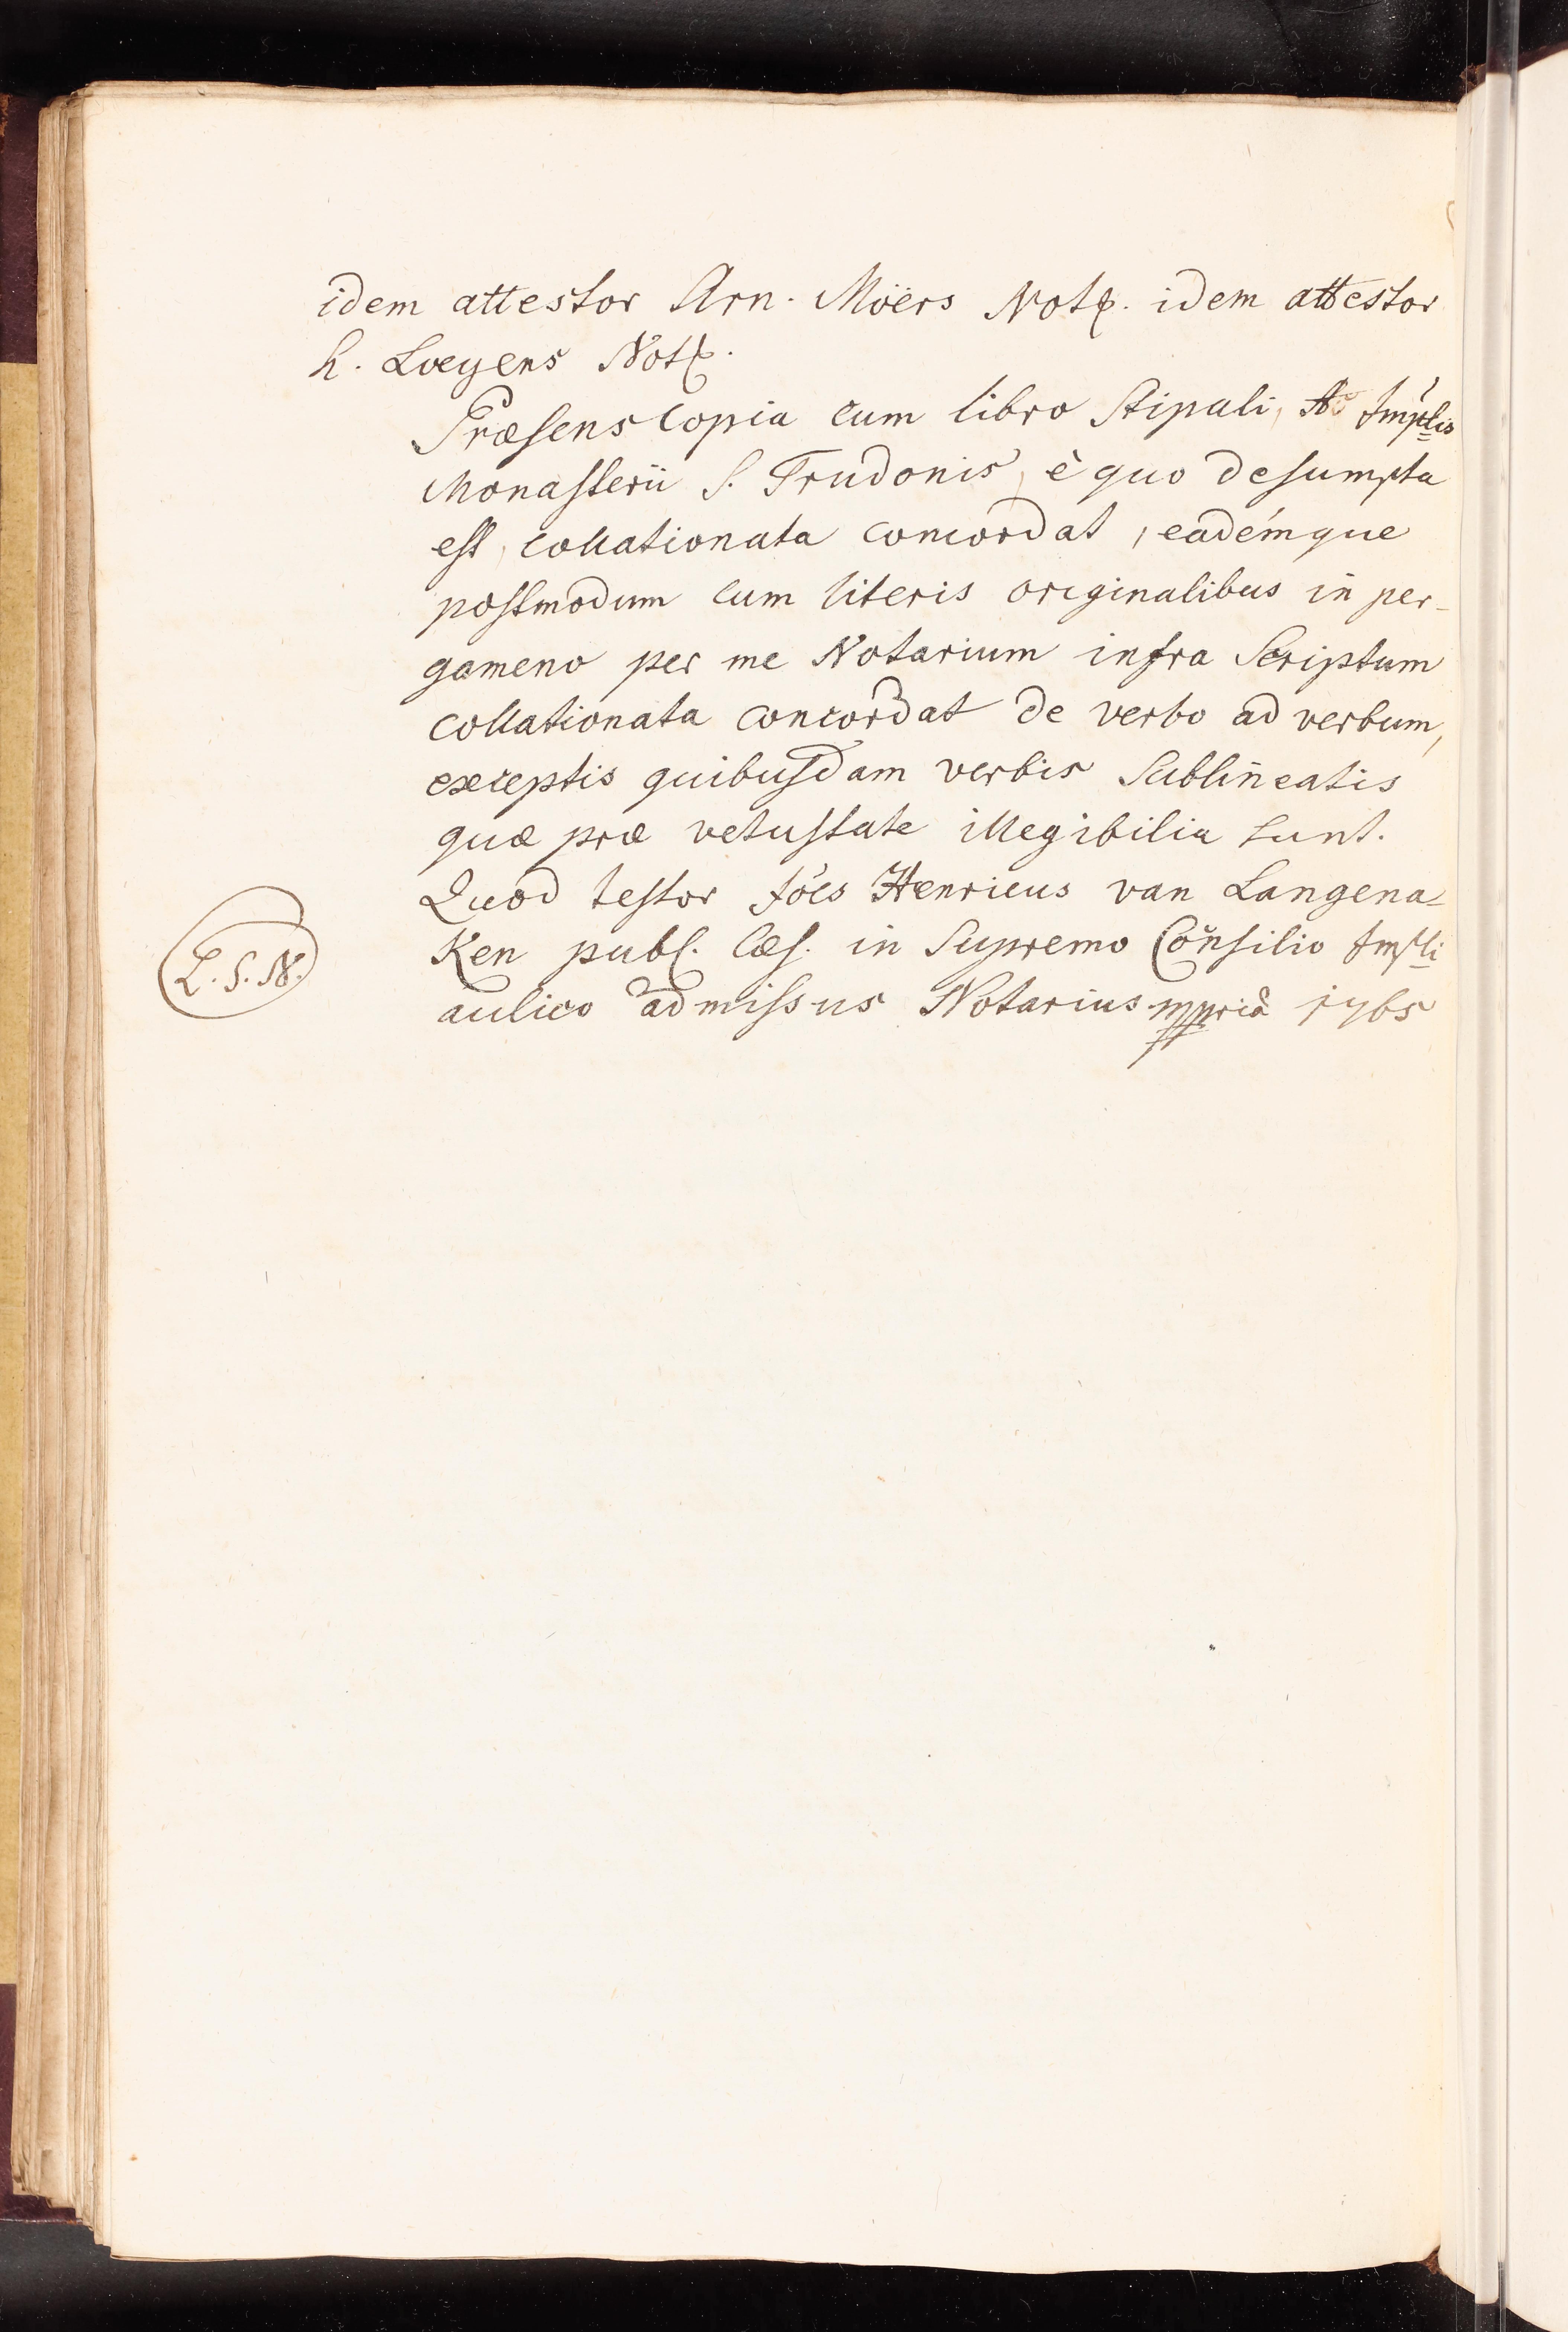 idem attestor Arn. Möërs Not. idem attestor
h. Loeyens Not.
Præsens Copia cum libro Stipali, A Imp̃lis
Monasterii S. Trudonis, è quo desumpta
est, collationata concordat, eademque
postmodum cum literis originalibus in per-
gameno per me Notarium infra Scriptum
collationata concordat de verbo ad verbum,
exceptis quibusdam verbis Sublineatis
quæ præ vetustate illegibilia sunt.
Quod testor Jões Henricus van Langena=
L.S.N.
Ken publ. Cæs. in Supremo Consilio Impli
aulico admissus Notarius mpriâ 1765